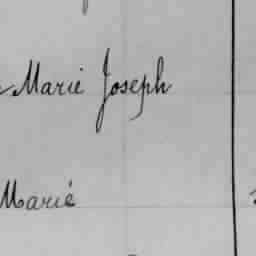 Marie Joseph
Marié